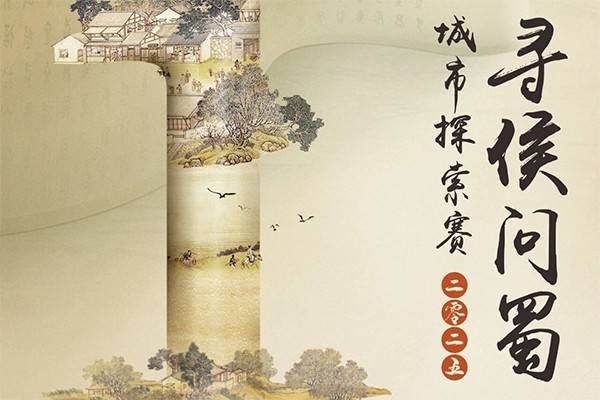 寻侯问蜀
城市探索赛
二零二五